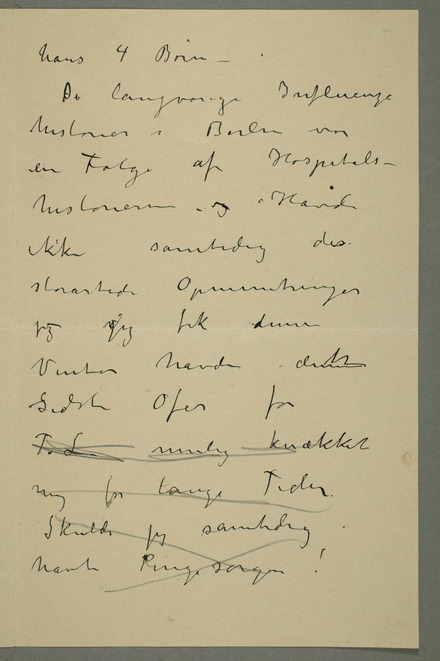 hans 4 Børn –
De langvarige Influenza
historier i Berlin var
en Følge af Hospitals-
historierne og Havde
ikke samtidig de
storartede Opmuntringer
jeg fik denne
Vinter havde dette
Sidste Offer for
muligt knækket
mig for lange Tider.
Skulde jeg samtidig
havt Pengesorger!